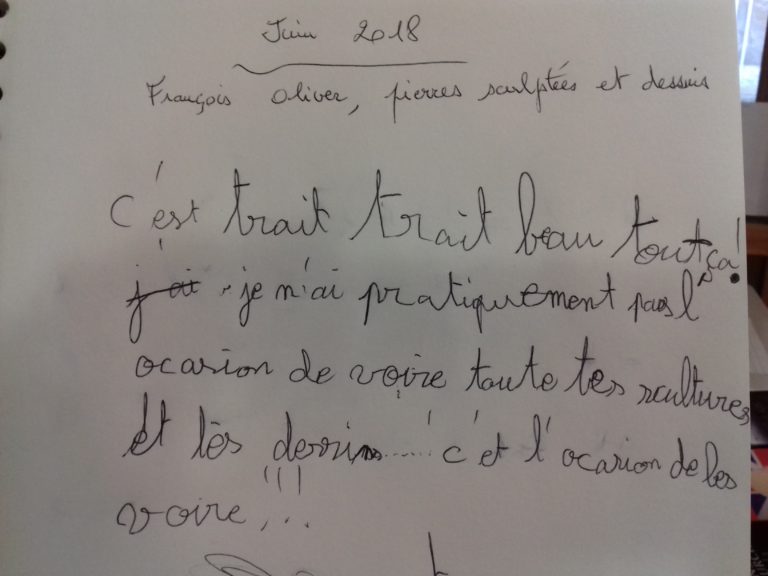 Juin 2018
François Oliver, pierres sculptées et dessins
C'est trait trait beau tout ça!
j'ai je n'ai pratiquement pas l'
ocasion de voire toute tes scultures
Et tes dessins......! c'et l'ocasion de les
voire,!!!